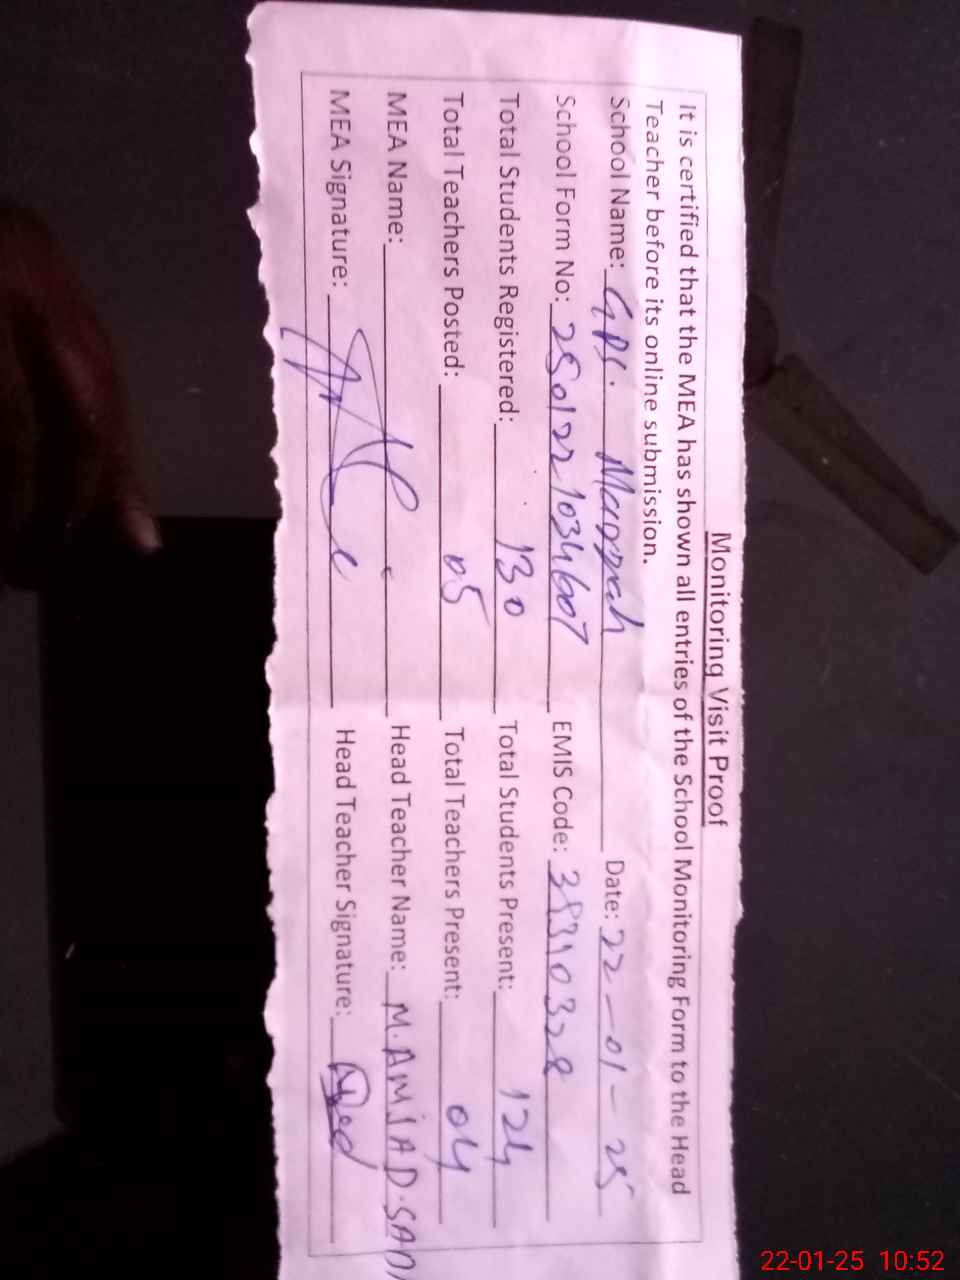 Monitoring Visit Proof
It is certified that the MEA has shown all entries of the School Monitoring Form to the Head
Teacher before its online submission.
School Name: GPS. Date: 22-01-25
School Form No: 2501221034607 EMIS Code: 38310328
Total Students Registered: 130 Total Students Present: 124
Total Teachers Posted: 05 Total Teachers Present: 04
MEA Name: Head Teacher Name: M.AMJAD.
MEA Signature: Head Teacher Signature:
22-01-25 10:52